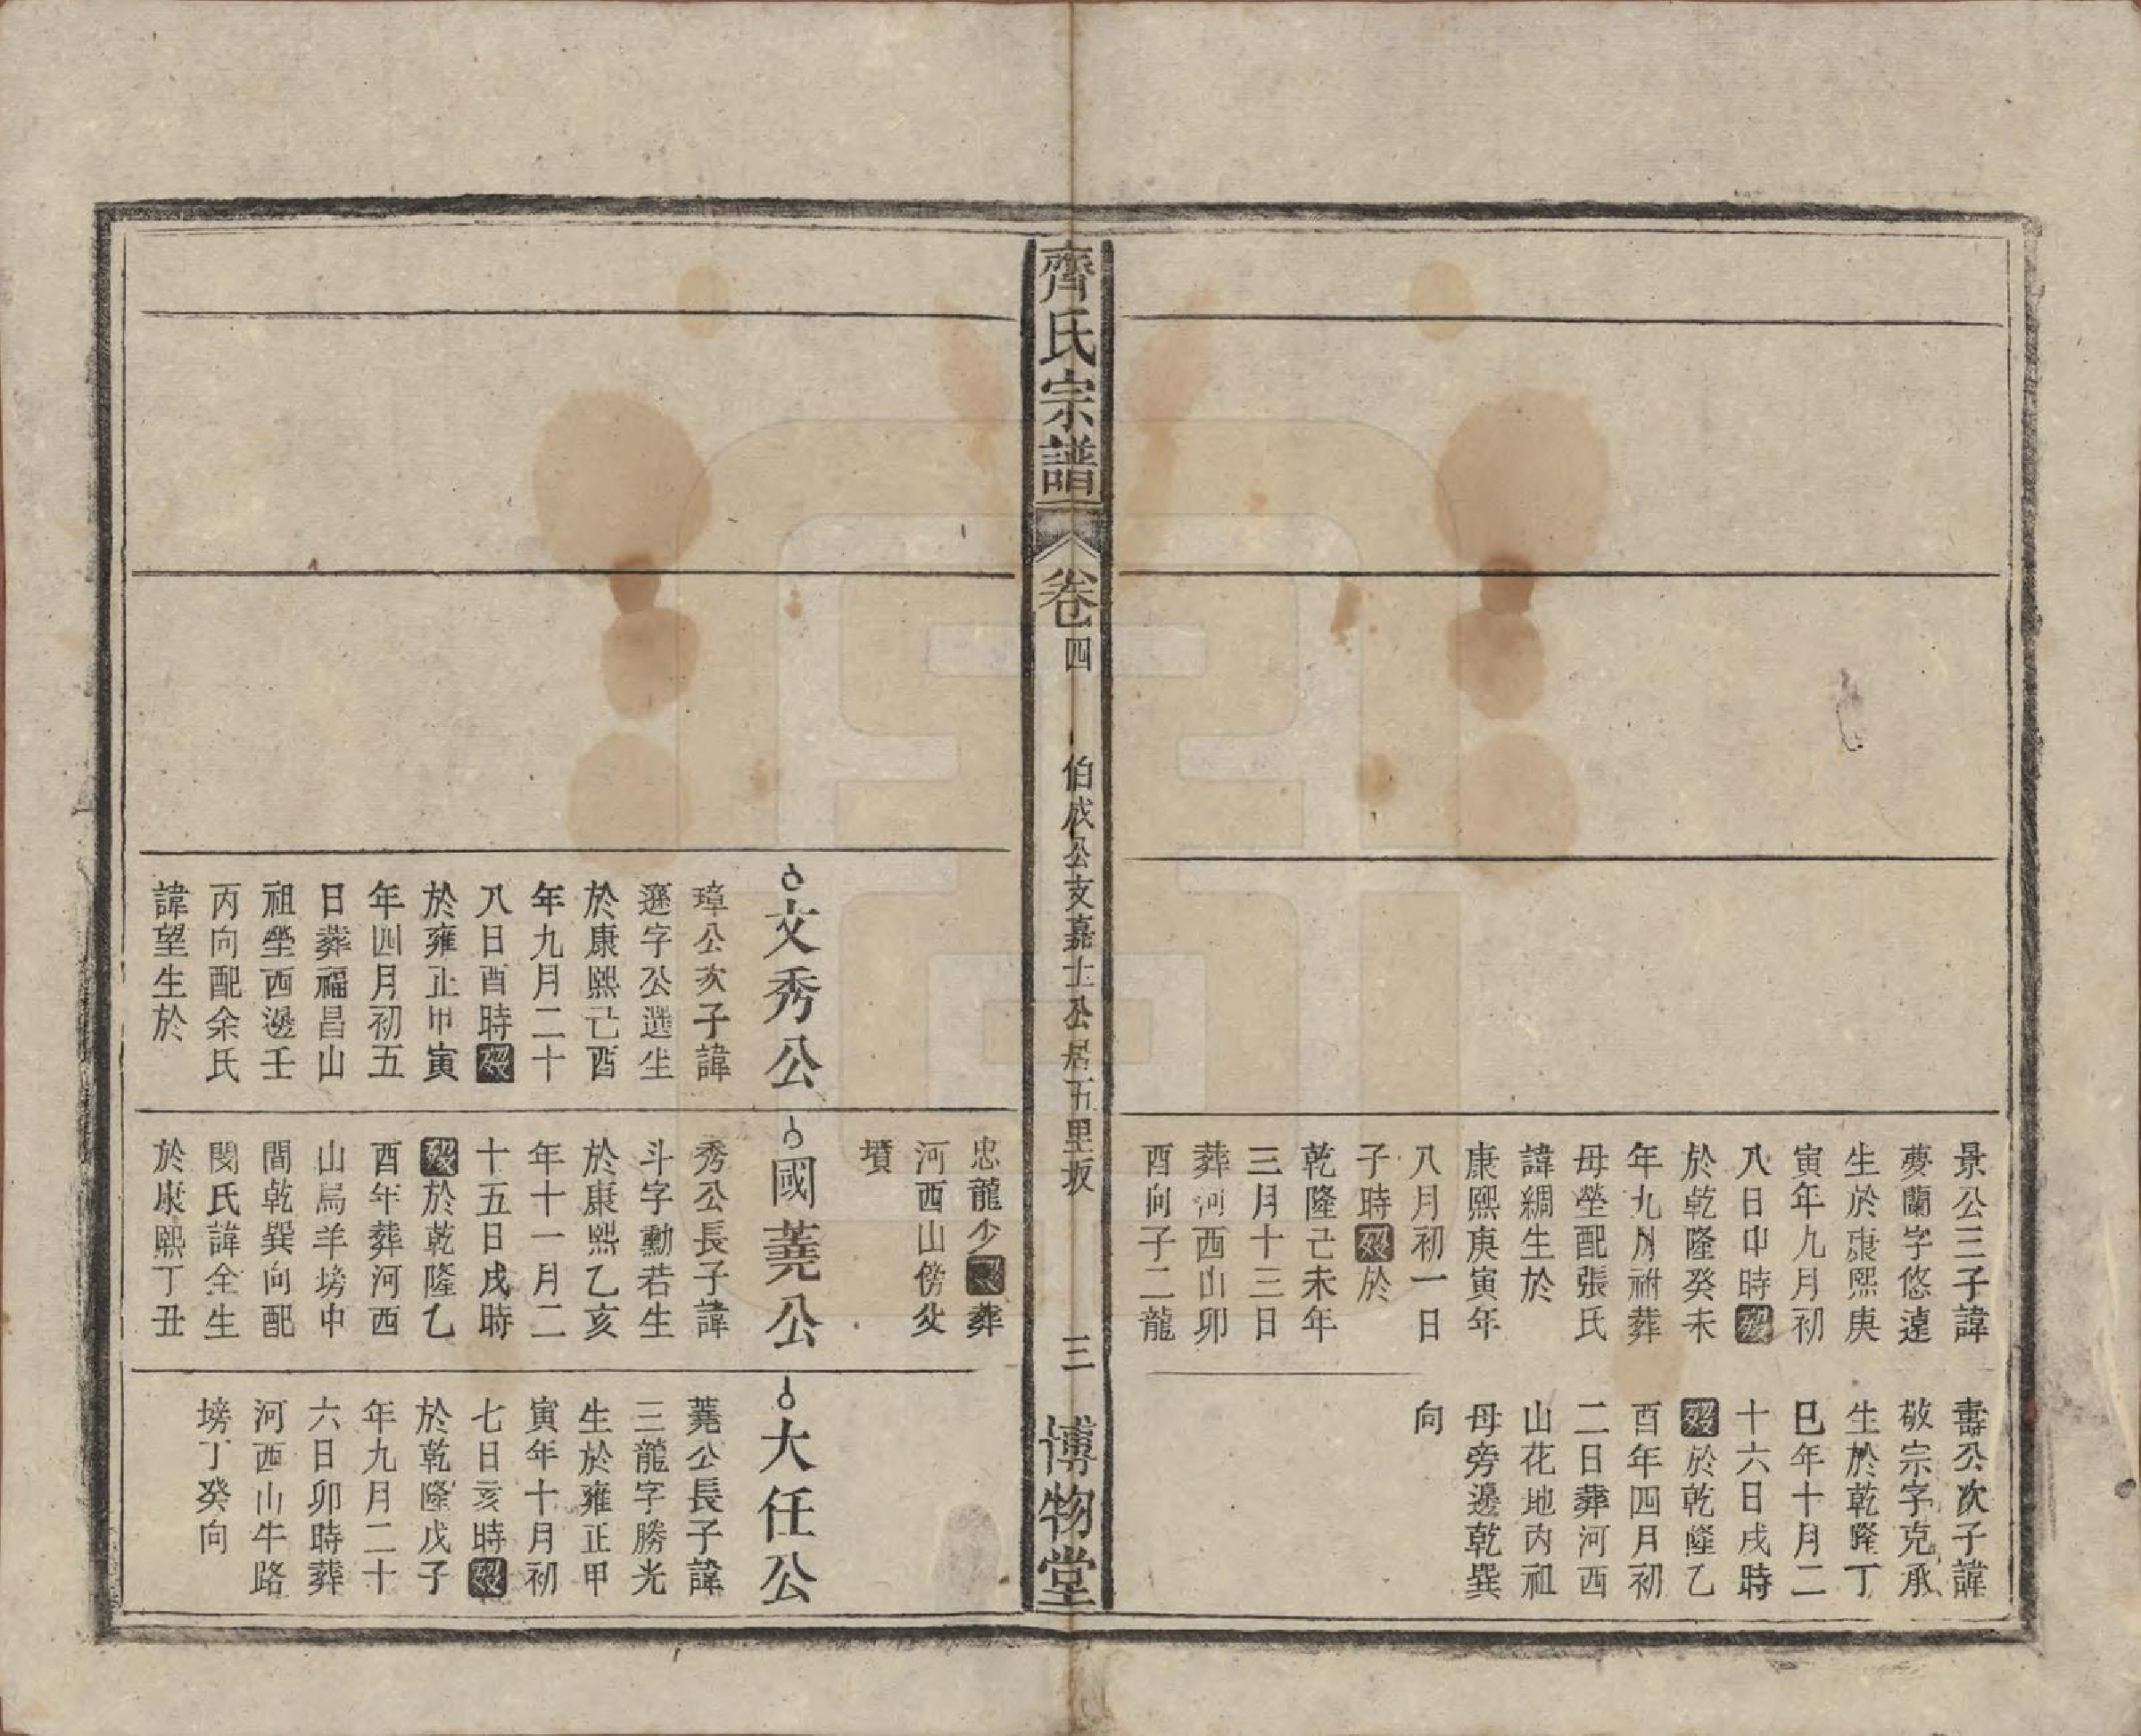 景公三子諱
夢蘭字悠遠
生於康熙庚
寅年九月初
八日申時歿
於乾隆癸未
年九月祔葬
母塋配張氏
諱綢生於
康熙庚寅年
八月初一日
子時歿於
乾隆己未年
三月十三日
葬河西山卯
酉向子二龍
壽公次子諱
敬宗字克承
生於乾隆丁
巳年十月二
十六日戌時
歿於乾隆乙
酉年四月初
二日葬河西
山花地內祖
母旁邊乾巽
向
齊氏宗譜
卷四
伯成公支嘉士公居五里坂
三
博物堂
文秀公
璋公次子諱
遜字公選生
於康熙己酉
年九月二十
八日酉時歿
於雍正甲寅
年四月初五
日葬福昌山
祖塋西邊壬
丙向配余氏
諱望生於
忠龍少歿葬
河西山傍父
墳
國蕘公
秀公長子諱
斗字勳若生
於康熙乙亥
年十一月二
十五日戌時
歿於乾隆乙
酉年葬河西
山烏羊塝中
間乾巽向配
閔氏諱全生
於康熙丁丑
大任公
蕘公長子諱
三龍字勝光
生於雍正甲
寅年十月初
七日亥時歿
於乾隆戊子
年九月二十
六日卯時葬
河西山牛路
塝丁癸向